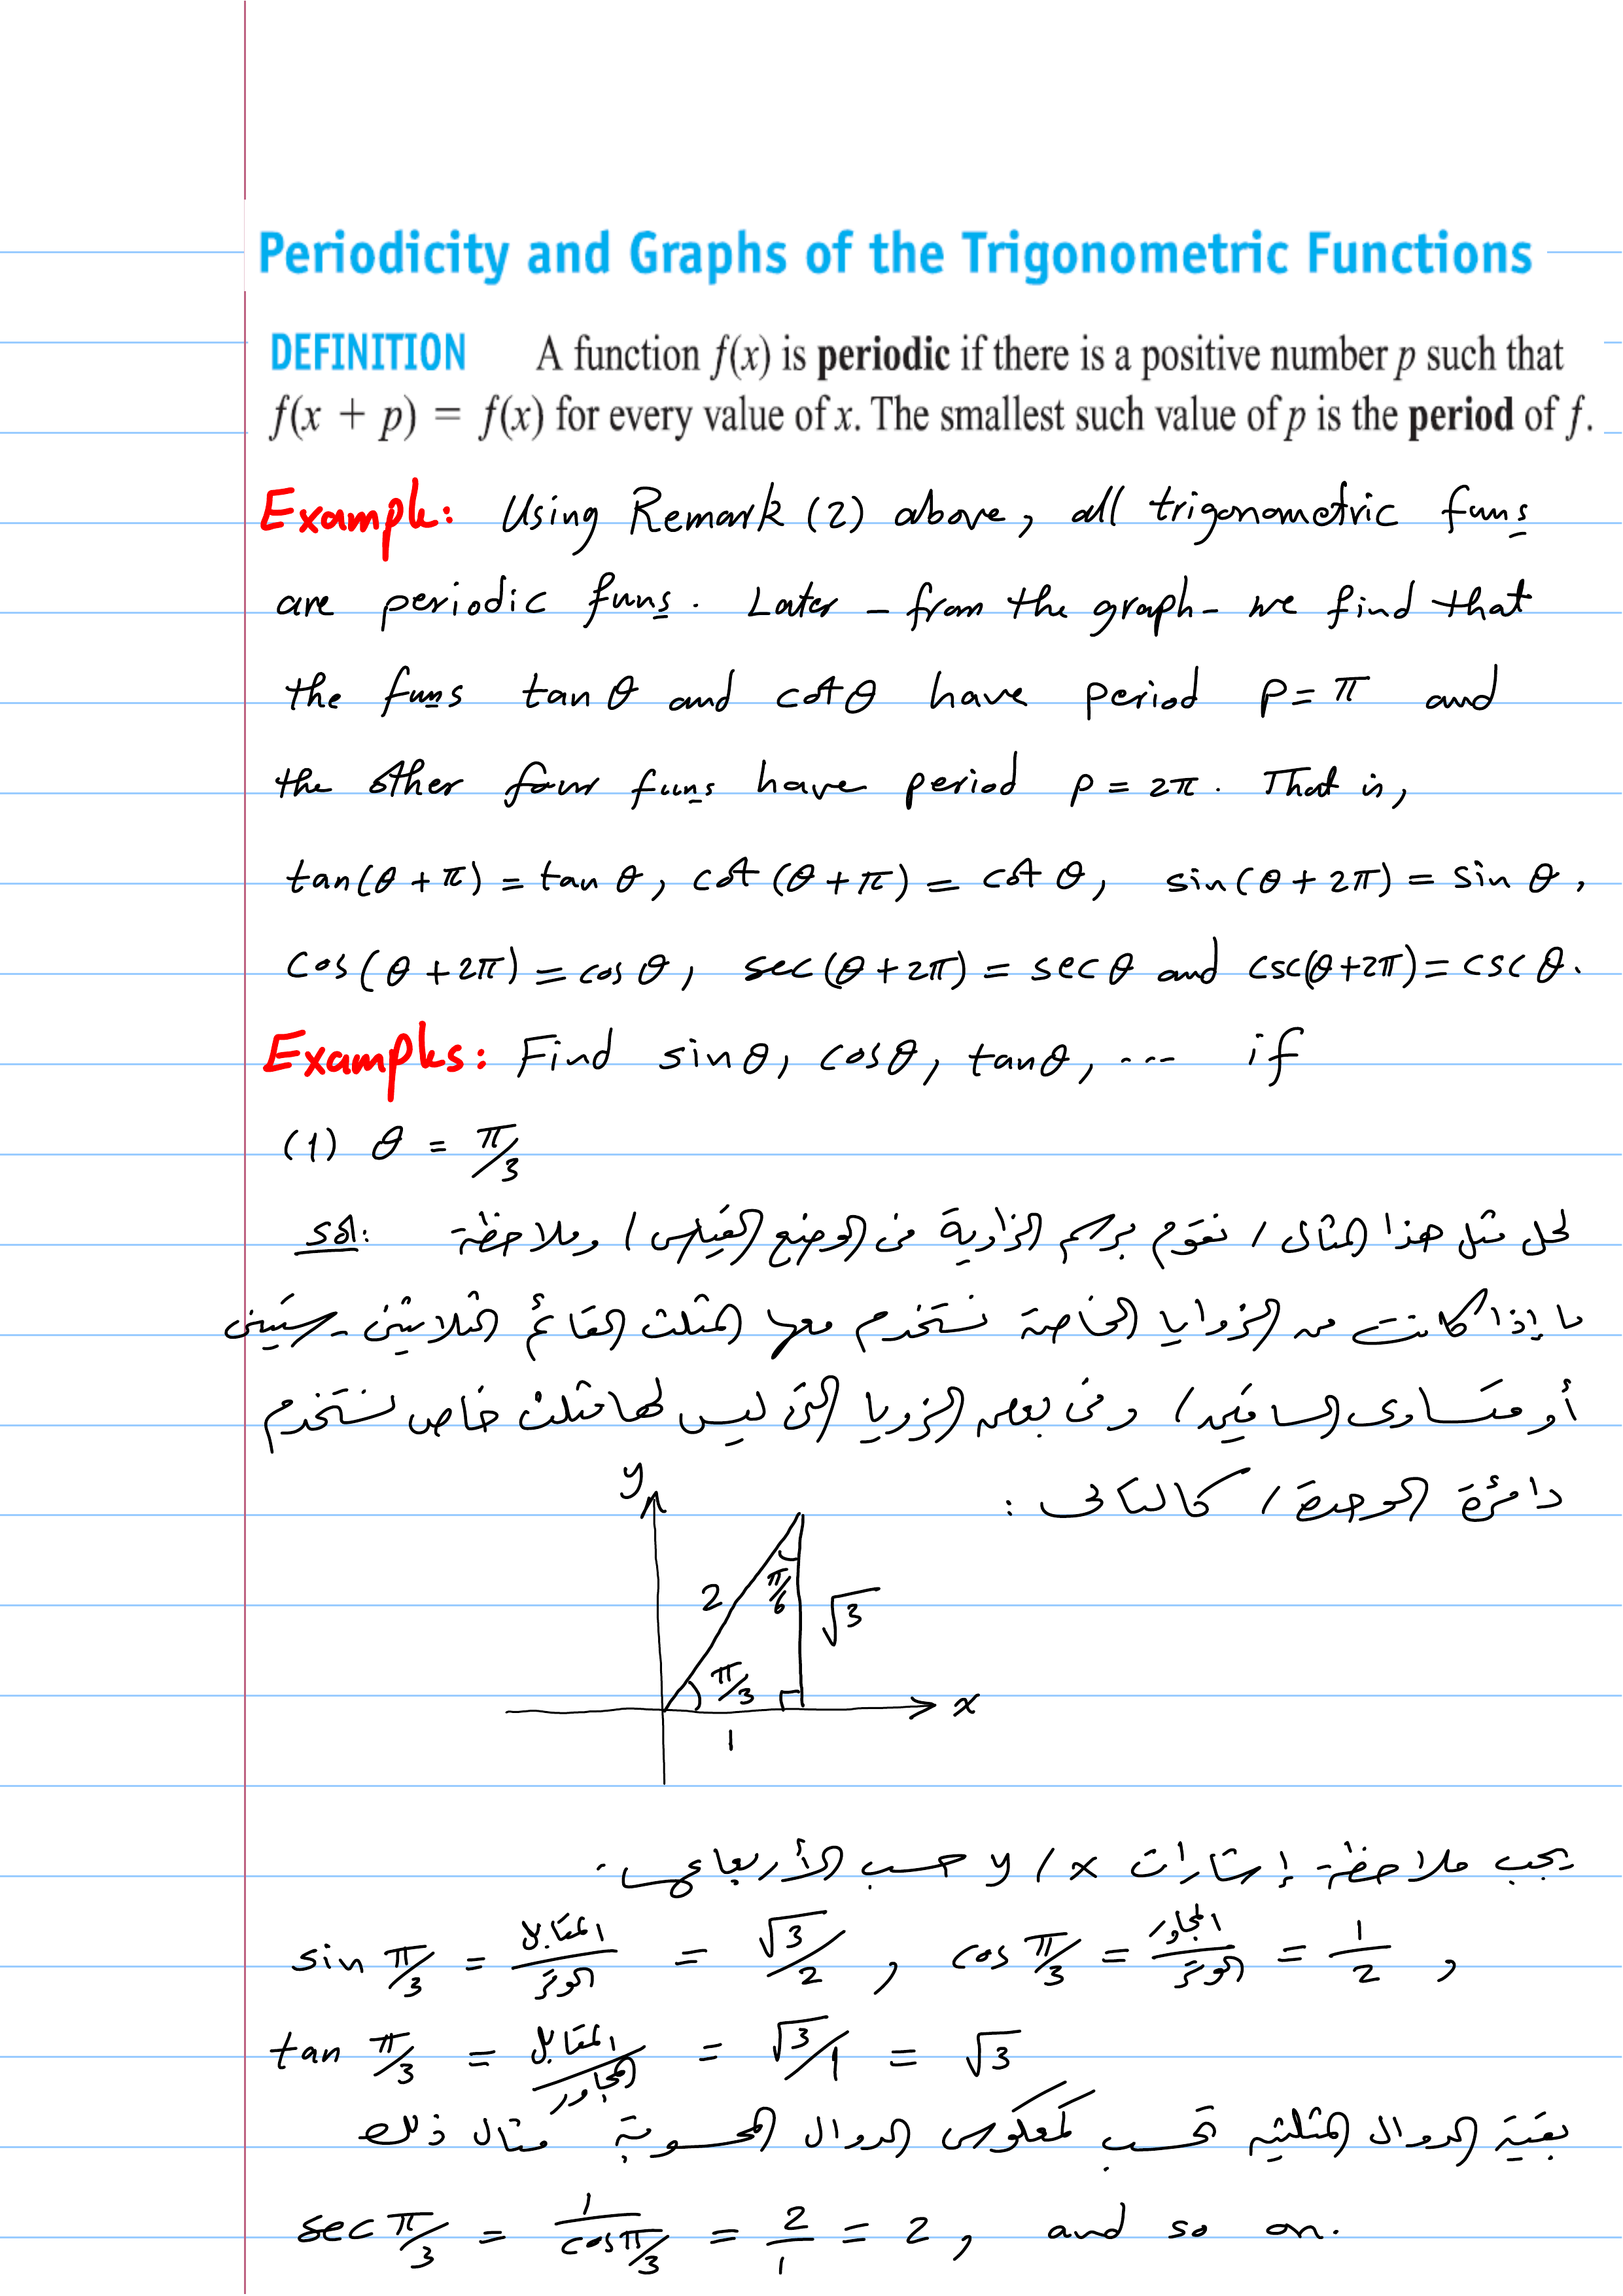 Periodicity and Graphs of the Trigonometric Functions
DEFINITION A function f(x) is periodic if there is a positive number p such that
f(x + p) = f(x) for every value of x. The smallest such value of p is the period of f.
Example: Using Remark (2) above, all trigonometric funs
are periodic funs. Later - from the graph - we find that
the funs tan θ and cot θ have period p = π and
the other four funs have period p = 2π. That is,
tan(θ + π) = tan θ, cot(θ + π) = cot θ, sin(θ + 2π) = sin θ,
cos(θ + 2π) = cos θ, sec(θ + 2π) = sec θ and csc(θ + 2π) = csc θ.
Examples: Find sin θ, cos θ, tan θ, ... if
(1) θ = π/3
sol: لحل مثل هذا المثال، نقوم برسم الزاوية في الوضع القياسي، وملاحظة
ما إذا كانت من الزوايا الخاصة نستخدم معها المثلث القائم الثلاثيني - ستيني
أو متساوى الساقين، وفى بعض الزوايا التى ليس لها مثلث خاص نستخدم
دائرة الوحدة، كالتالى :
y
2 π/6 √3
π/3 x
1
يجب ملاحظة إشارات x ، y حسب الأرباع.
sin π/3 = المقابل/الوتر = √3/2 , cos π/3 = المجاور/الوتر = 1/2 ,
tan π/3 = المقابل/المجاور = √3/1 = √3
بقية الدوال المثلثية تحسب كمعكوس الدوال المحسوبة مثال ذلك
sec π/3 = 1/cos π/3 = 2/1 = 2 , and so on.